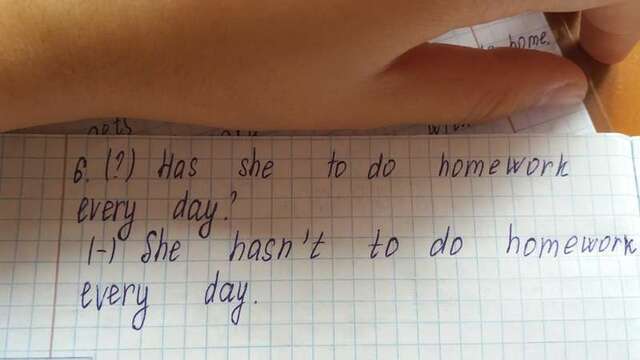 6. (?) Has she to do homework
every day?
(-) She hasn't to do homework
every day.
home.